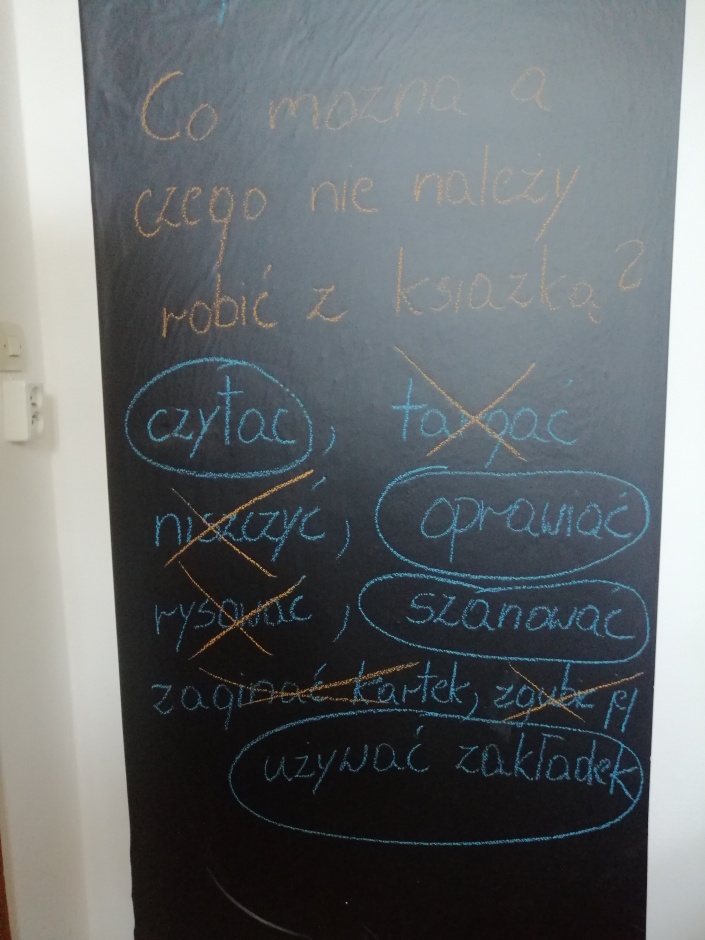 Co mozna a
czego nie należy
robić z ksiazką?
czytac, targać
niszczyć, oprawiać
rysować, szanować
zaginać kartek,
używać zakładek